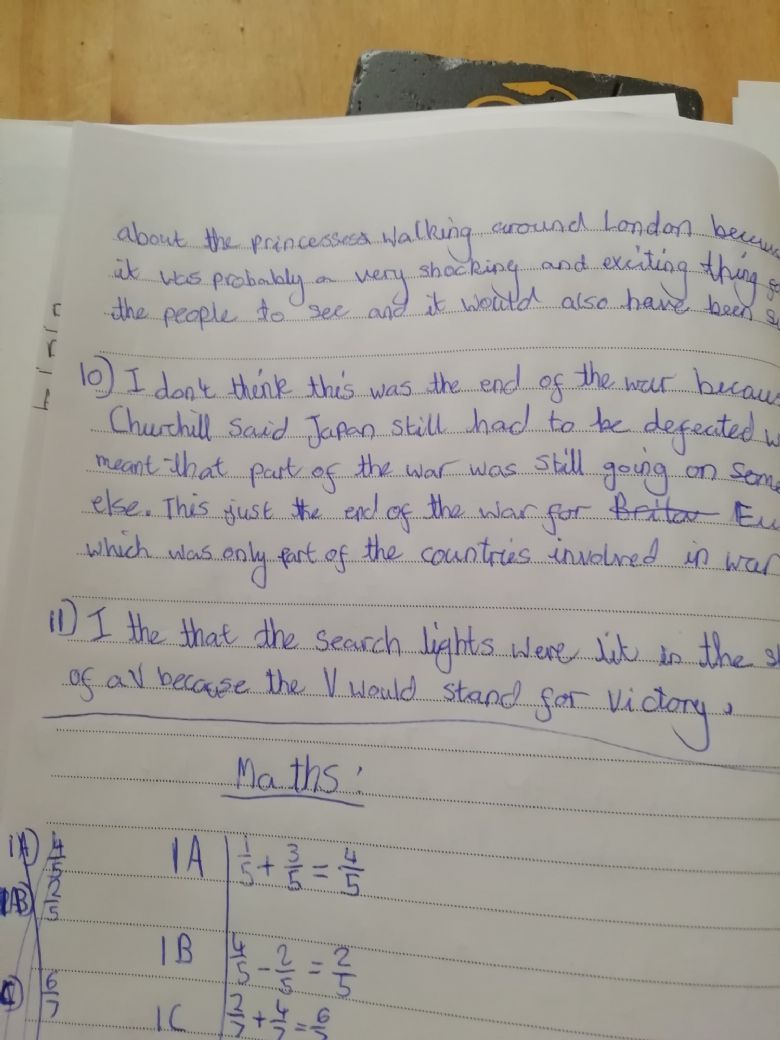 about the princesses walking around London
it was probably a very shocking and exciting thing
the people to see and it would also have been
10) I don't think this was the end of the war
Churchill said Japan still had to be defeated
meant that part of the war was still going on
else. This just the end of the war for
which was only part of the countries involved in war
11) I the that the search lights were lit in the
of a V because the V would stand for Victory.
Maths:
1A) 4/5 1A 1/5 + 3/5 = 4/5
1B) 2/5
1B 4/5 - 2/5 = 2/5
6/7 1C 2/7 + 4/7 = 6/7